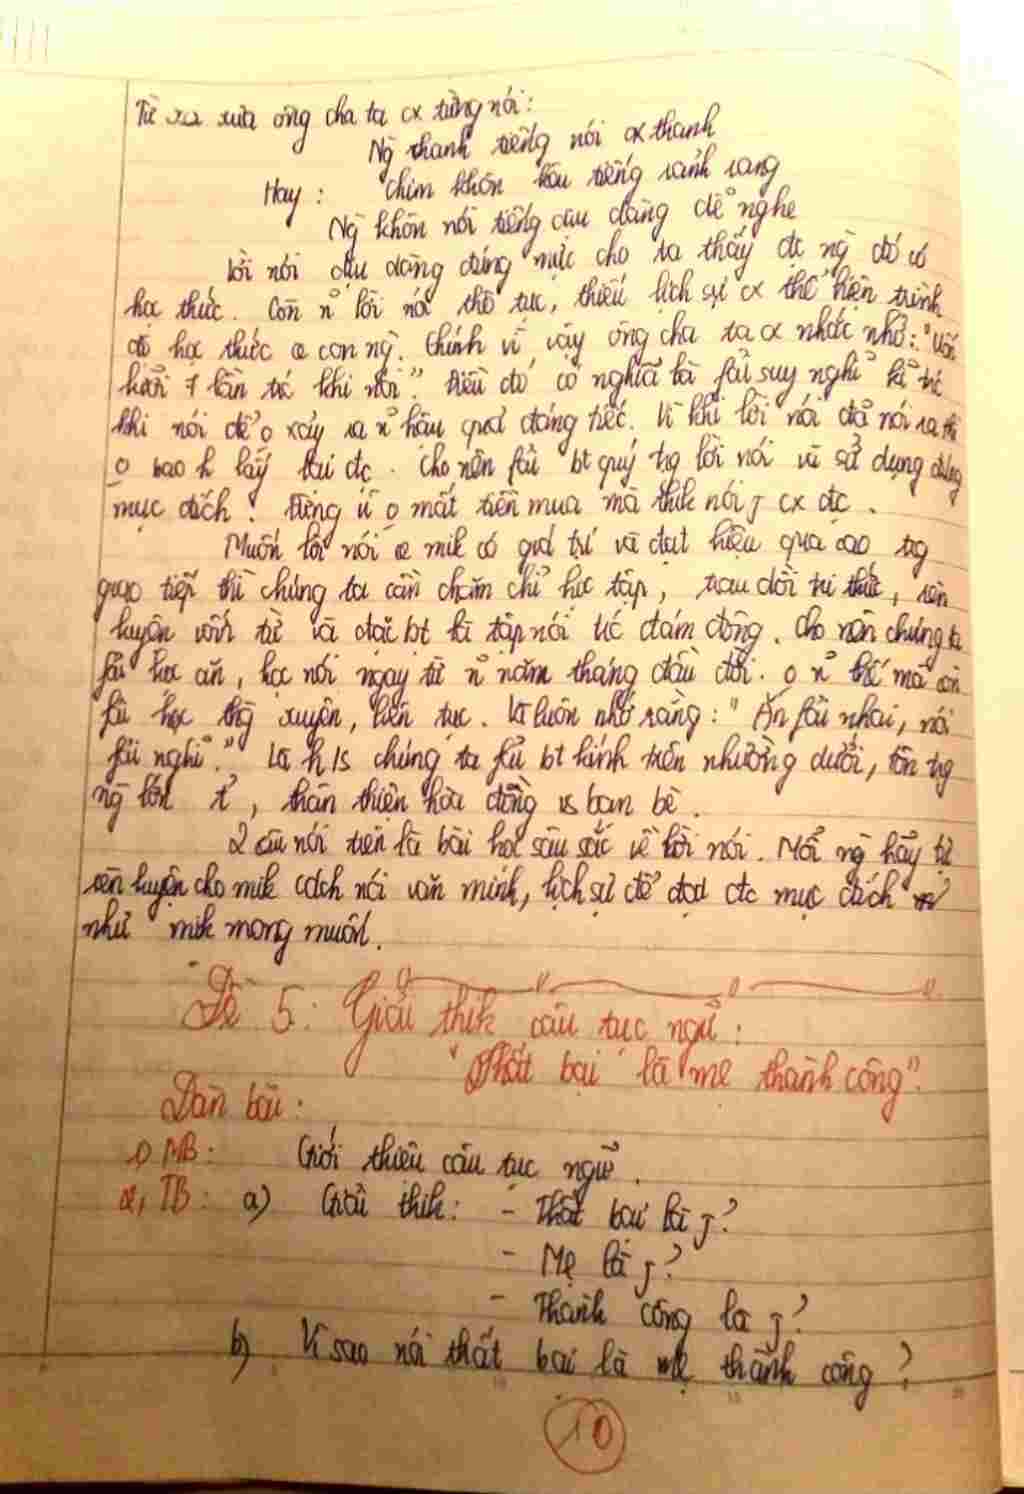 Từ xa xưa ông cha ta cx từng nói:
Ng thanh tiếng nói cx thanh
Hay: Chim khôn kêu tiếng rảnh rang
Ng khôn nói tiếng dịu dàng dễ nghe
Lời nói dịu dàng đúng mực cho ta thấy đc ng đó có
học thức. Còn n~ lời nói thô tục, thiếu lịch sự cx thể hiện trình
độ học thức con ng. Chính vì vậy ông cha ta cx nhắc nhở: "Uốn
lưỡi 7 lần trc khi nói". Điều đó có nghĩa là fải suy nghĩ kĩ trc
khi nói để o xảy ra n~ hậu quả đáng tiếc. Vì khi lời nói đã nói ra thì
o bao h lấy lại đc. Cho nên fải bt quý trg lời nói và sử dụng đúng
mục đích. Đừng vì o mất tiền mua mà thik nói j cx đc.
Muốn lời nói mik có giá trị và đạt hiệu quả cao trg
giao tiếp thì chúng ta cần chăm chỉ học tập, trau dồi tri thức, rèn
luyện vốn từ và đặc bt là tập nói trc đám đông. Cho nên chúng ta
fải học ăn, học nói ngay từ n~ năm tháng đầu đời. o n~ thế mà còn
fải học thg xuyên, liên tục. Và luôn nhớ rằng: "Ăn fải nhai, nói
fải nghĩ." Là h/s chúng ta fải bt kính trên nhường dưới, tôn trg
ng lớn, thân thiện hòa đồng vs bạn bè.
2 câu nói trên là bài học sâu sắc về lời nói. Mỗi ng hãy tự
rèn luyện cho mik cách nói văn minh, lịch sự để đạt đc mục đích
như mik mong muốn.
Đề 5: Giải thik câu tục ngữ:
"Thất bại là mẹ thành công".
Dàn bài:
1) MB: Giới thiệu câu tục ngữ.
2, TB: a) Giải thik: - Thất bại là j?
- Mẹ là j?
- Thành công là j?
b) Vì sao nói thất bại là mẹ thành công?
10